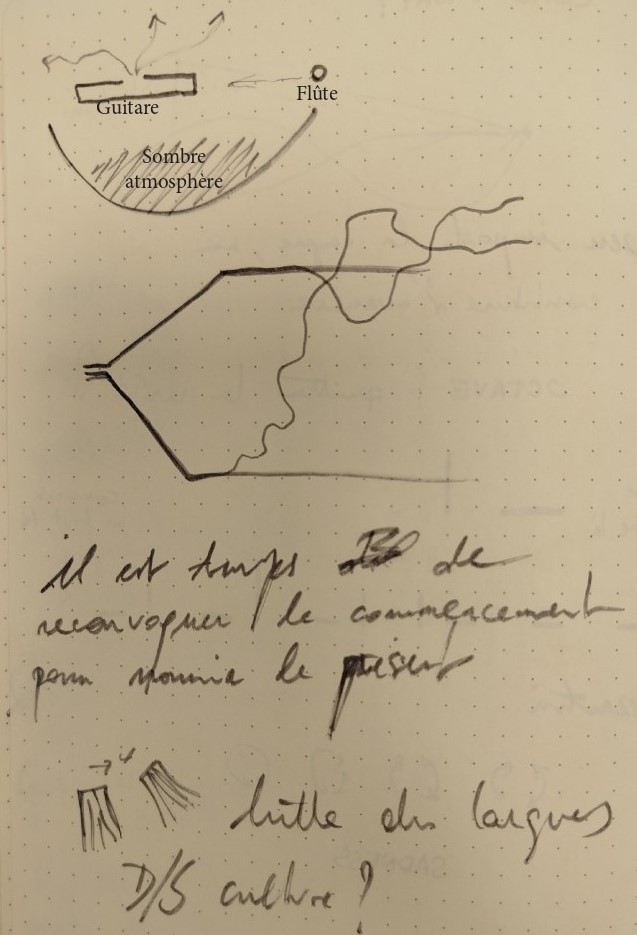 Flûte
Guitare
Sombre
atmosphère
il est temps de
reconvoquer le commencement
pour nourrir le présent
lutte des langues
D/S culture ?